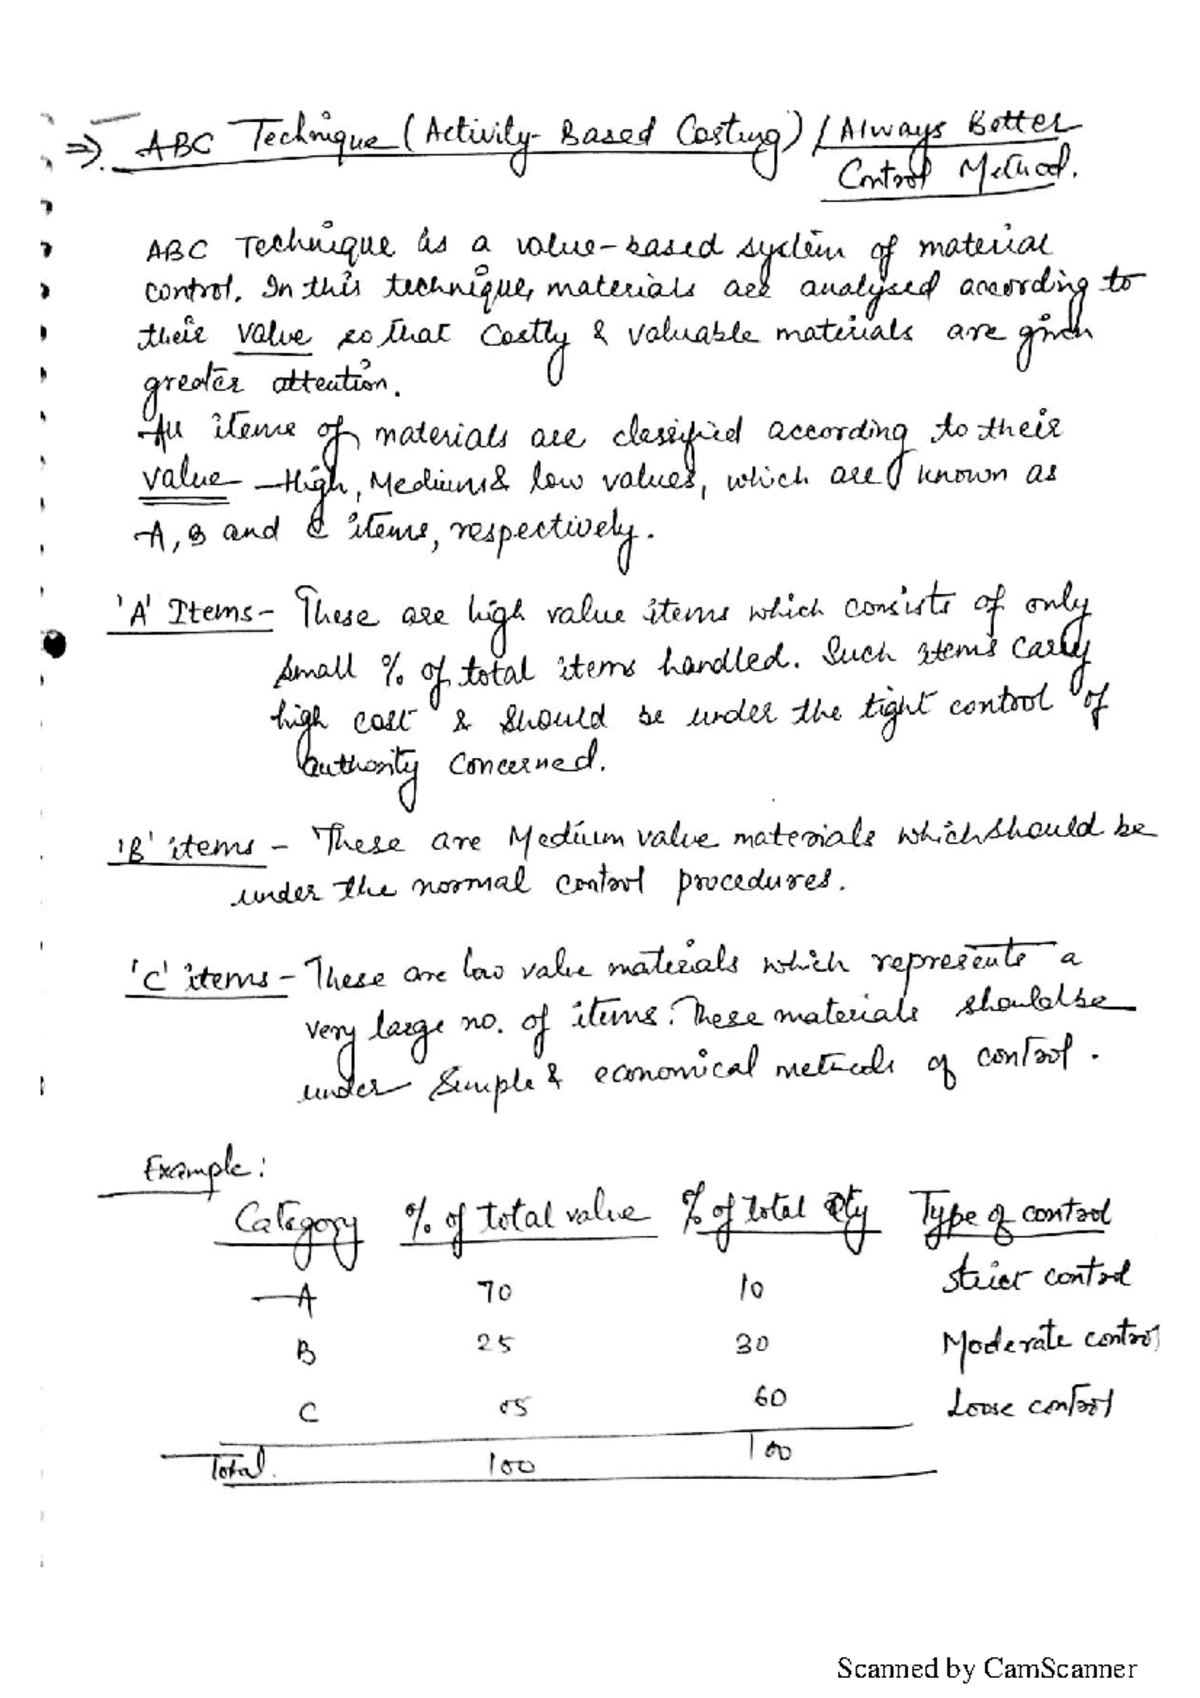 ⇒. ABC Technique (Activity-Based Costing) / Always Better
Control Method.
ABC Technique is a value-based system of material
control. In this technique, materials are analysed according to
their value so that Costly & valuable materials are given
greater attention.
All items of materials are classified according to their
value - High, Medium & low values, which are known as
A, B and C items, respectively.
'A' Items - These are high value items which consists of only
small % of total items handled. Such items carry
high cost & should be under the tight control of
authority concerned.
'B' items - These are Medium value materials which should be
under the normal control procedures.
'C' items - These are low value materials which represents a
very large no. of items. These materials should be
under Simple & economical methods of control.
Example:
Category % of total value % of total Qty Type of control
A 70 10 Strict control
B 25 30 Moderate control
C 05 60 Loose control
Total. 100 100
Scanned by CamScanner